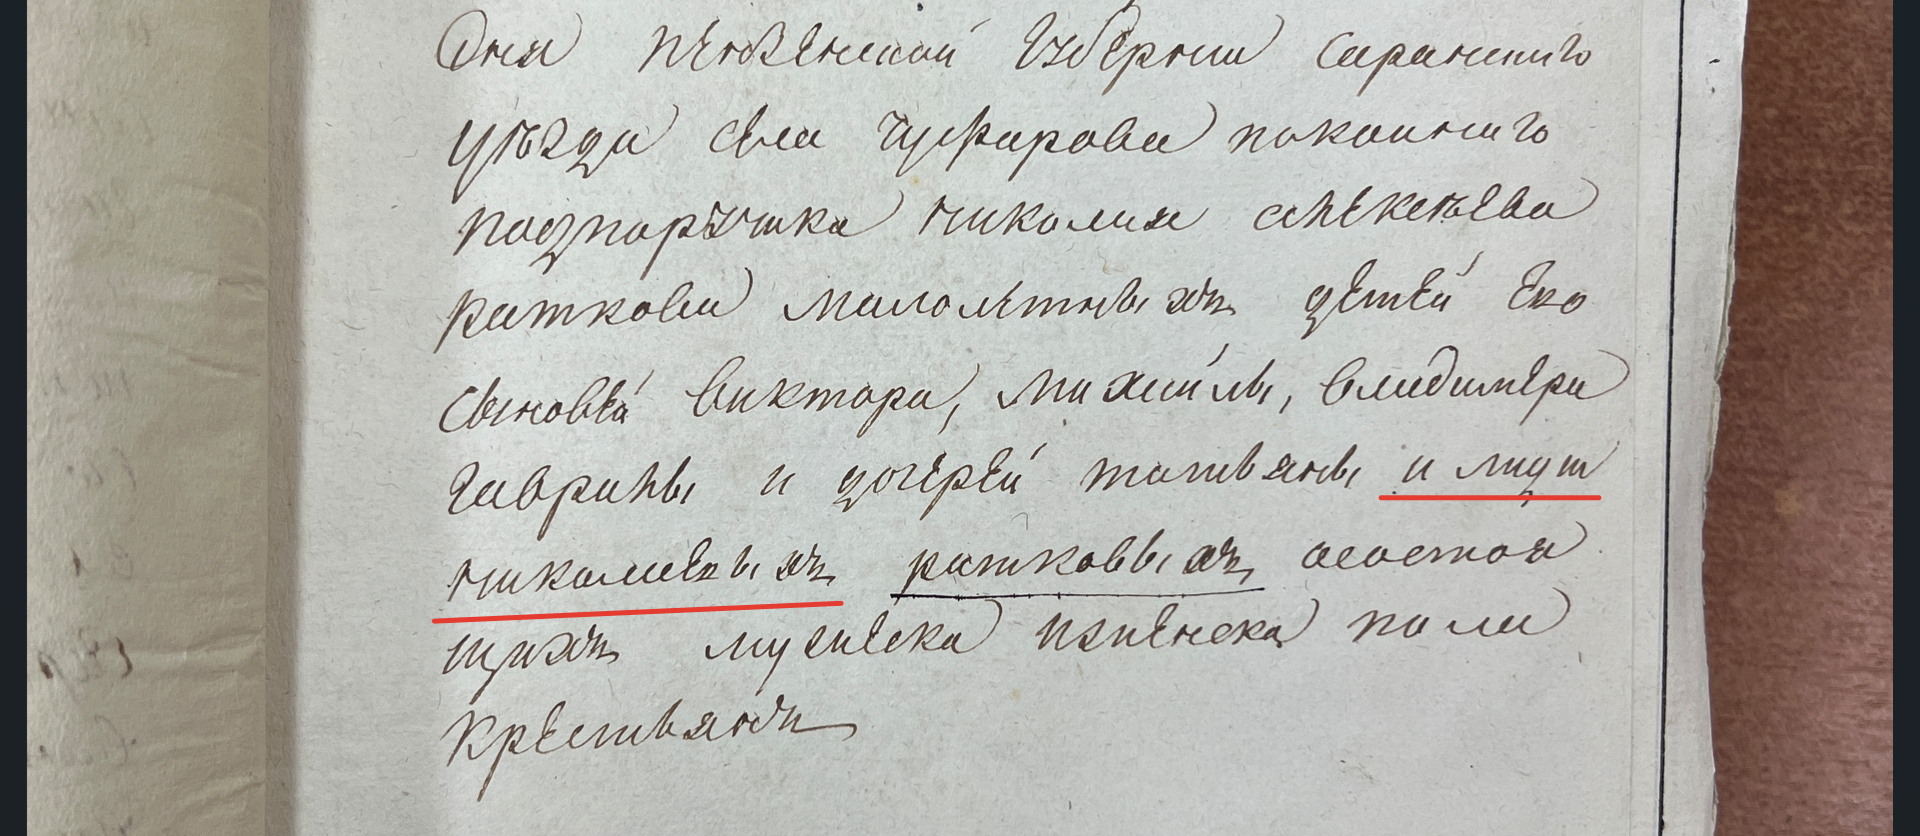 Дня пензенской губернии саранскаго
уѣзда села чуфарова покоинаго
подпоручика николая алексѣева
раткова малолѣтныхъ детей ево
сыновеи виктора, михаилы, владимера
гаврилы и дочереи татьяны и
николаевыхъ ратковыхъ осостоя
щихъ мужеска иженска пола
крестьянъ